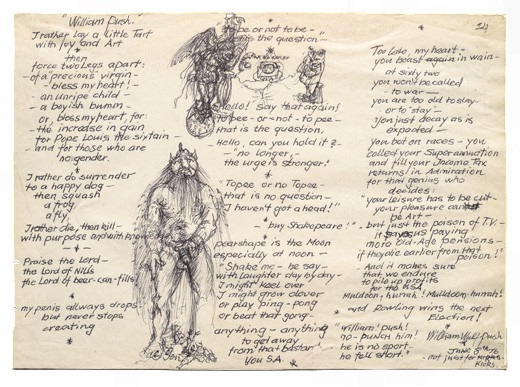 "William Push.
I rather lay a little Tart
with joy and Art
I rather do surrender
to a happy dog —
then squash
a frog
a fly,
I rather die, then kill —
with purpose and with
Praise the Lord —
the Lord of Nills
the Lord of beer-can-fills!
my penis allways drops
but never stops
creating
to be or not to be —
is the question —
Hello! say that again!
to pee - or - not - to pee —
that is the question,
Hello, can you hold it? —
"no longer, —
the urge is stronger!
Topee or no Topee —
that is no question —
I haven't got a head!"
buy Shakespeare!
pearshape is the Moon
especially at noon —
Shake me - he say —
with laughter day by day —
I might keel over
I might grow clover
or play ping-pong
or beat that gong.
anything — anything
to get away
from that bastar
You S.A.
34
Too late, my heart —
you boast again in vain —
at sixty two
you won't be called
to war —
you are too old to slay —
or to "stay" —
you just decay as is
expected —
You bet on races — you
collect your Super-annuation
and fill your Income Tax
returns! in Admiration
for that genius who
decides:
"your leisure has to be cut —
your pleasure can
be Art —
but just the poison of T.V.
it paying
more Old-Age pensions —
if they die earlier from that
poison!"
And it makes sure
that we endure
to pile up profits
for the USA
Muldoon, hurrah! Mulldoon, hurrah!
and Rowling wins the next
Election!
"William! push!
no - punch him!
he is no sport —
he fell short."
William Push
June 5th 76
not just for
Kicks.